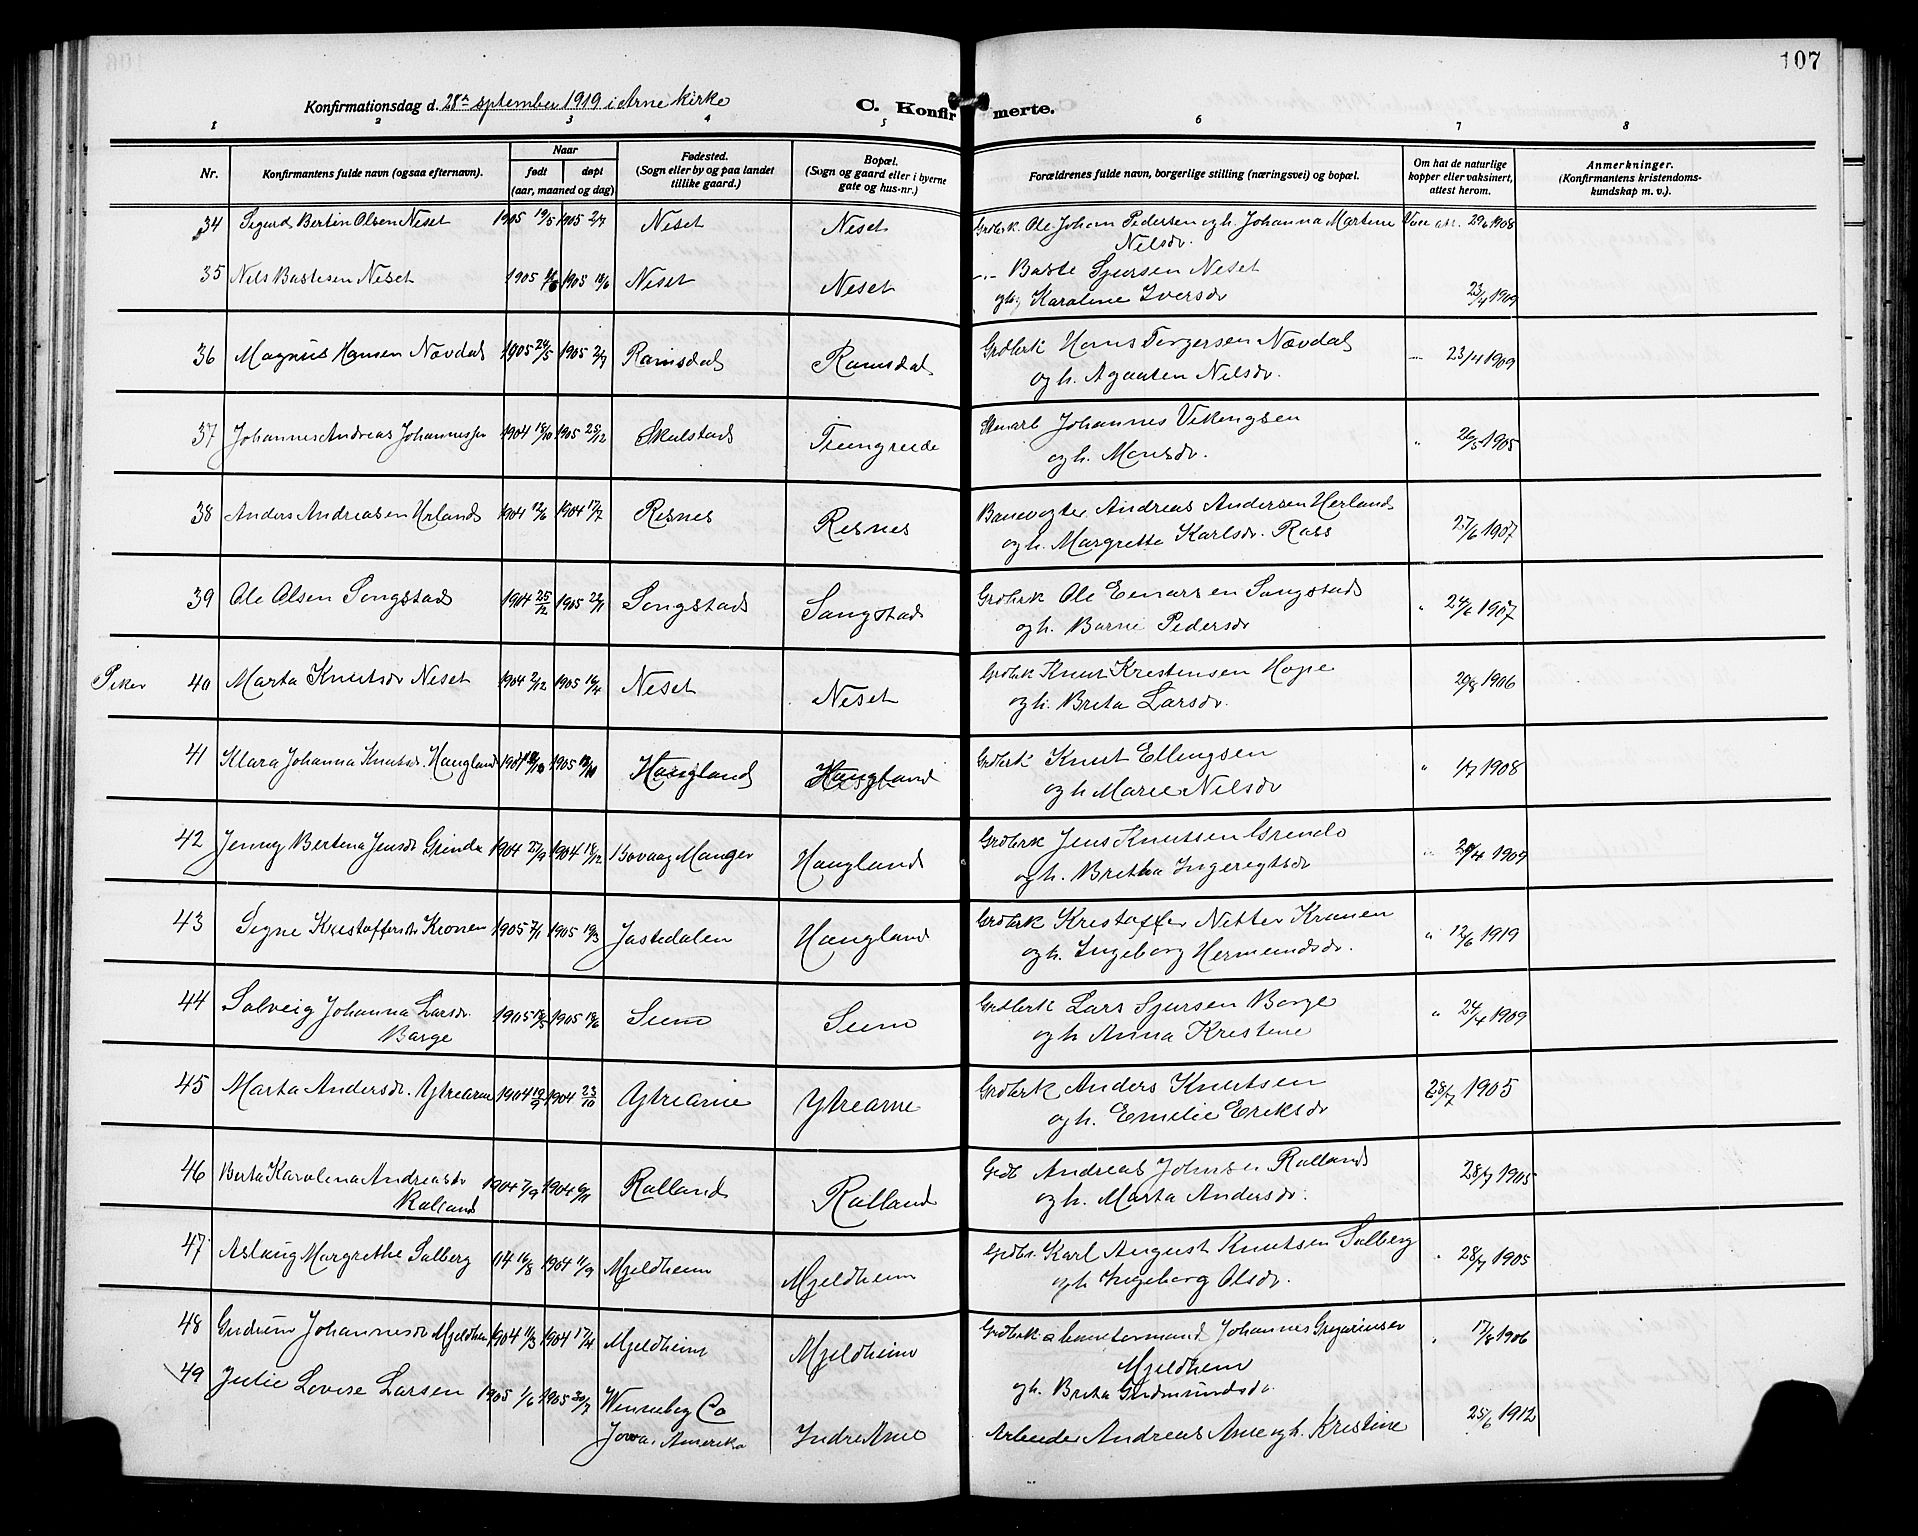 107
Konfirmationsdag d. 28de september 1919 i Arne kirke
C. Konfirmerte.
1 2 3 4 5 6 7 8
Nr.
Konfirmantens fulde navn (ogsaa efternavn).
Naar
født døpt
(aar, maaned og dag)
Fødested.
(Sogn eller by og paa landet
tillike gaard.)
Bopæl.
(Sogn og gaard eller i byerne
gate og hus-nr.)
Forældrenes fulde navn, borgerlige stilling (næringsvei) og bopæl.
Om hat de naturlige
kopper eller vaksinert,
attest herom.
Anmerkninger.
(Konfirmantens kristendoms-
kundskap m. v.)
34 Sigurd Bertin Olsen Neset 1905 19/5 1905 2/7 Neset Neset Grdbrk. Ole Johan Pedersen og h. Johanna Martine 29/6 1908
Nilsdr.
35 Nils Bastesen Neset 1905 1905 18/6 Neset Neset Baste Sjursen Neset
og h. Karoline Iversdr 23/4 1909
36 Magnus Hansen Nævdal 1905 24/5 1905 2/7 Ramsdal Ramsdal Grdbrk Hans Torgersen Nævdal 23/4 1909
og h. Agaaten Nilsdr.
37 Johannes Andreas Johannessen 1904 18/10 1905 25/12 Skulstad Trengreide Johannes Vikingsen 26/5 1905
og h. Monsdr.
38 Anders Andreasen Herland 1904 12/6 1904 17/7 Risnes Risnes Banevogter Andreas Andersen Herland 27/6 1907
og h. Margrette Karlsdr. Ross
39 Ole Olsen Songstad 1904 25/12 1905 22/1 Songstad Songstad Grdbrk Ole Einarsen Songstad 24/6 1907
og h. Barni Pedersdr
Piker 40 Marta Knutsdr Neset 1904 2/12 1905 16/4 Neset Neset Grdbrk Knut Kristensen Hope 29/8 1906
og h. Brita Larsdr.
41 Klara Johanna Knutsdr. Haugland 1904 1905 Haugland Haugland Grdbrk Knut Ellingsen 1908
og h Marie Nilsdr
42 Jenny Bertina Jensdr Grinde 1904 27/9 1904 18/12 Bovaag Manger Haugland Grdbrk Jens Knutsen Grindo 1909
og h. Britha Ingerigtsdr
43 Signe Kristoffersdr Kronen 1905 7/1 1905 19/3 Jostedalen Haugland Grdbrk Kristoffer Nitter Kronen 12/6 1919
og h. Ingeborg Hermundsdr.
44 Solveig Johanna Larsdr. 1905 1905 18/6 Seim Seim Grdbrk Lars Sjursen Borge 24/4 1909
Borge og h Anna Kristine
45 Marta Andersdr. Ytrearne 1904 19/9 1904 23/10 Ytrearne Ytrearne Grdbrk Anders Knutsen 28/7 1905
og h. Emilie Eriksdr
46 Berta Karolina Andreasdr 1904 7/9 1904 6/11 Rolland Rolland Grdb Andreas Johnsen Rolland 28/7 1905
Rolland og h. Marta Andersdr.
47 Aslaug Margrethe Solberg 04 16/8 1904 11/9 Mjeldheim Mjeldheim Grdbr. Karl August Knutsen Solberg 28/7 1905
og h Ingeborg Olsdr.
48 Gudrun Johannesdr Mjeldheim 1904 11/3 1904 17/4 Mjeldheim Mjeldheim Grdbrk. Johannes Gregoriusen 17/8 1906
Mjeldheim
og h. Brita Gudmundsdr.
49 Julie Lovise Larsen 1905 1/6 1905 30/7 Winnebeg Co
Jowa, Amerika Indre Arne Arbeider Andreas Arne og h. Kristine 25/6 1912